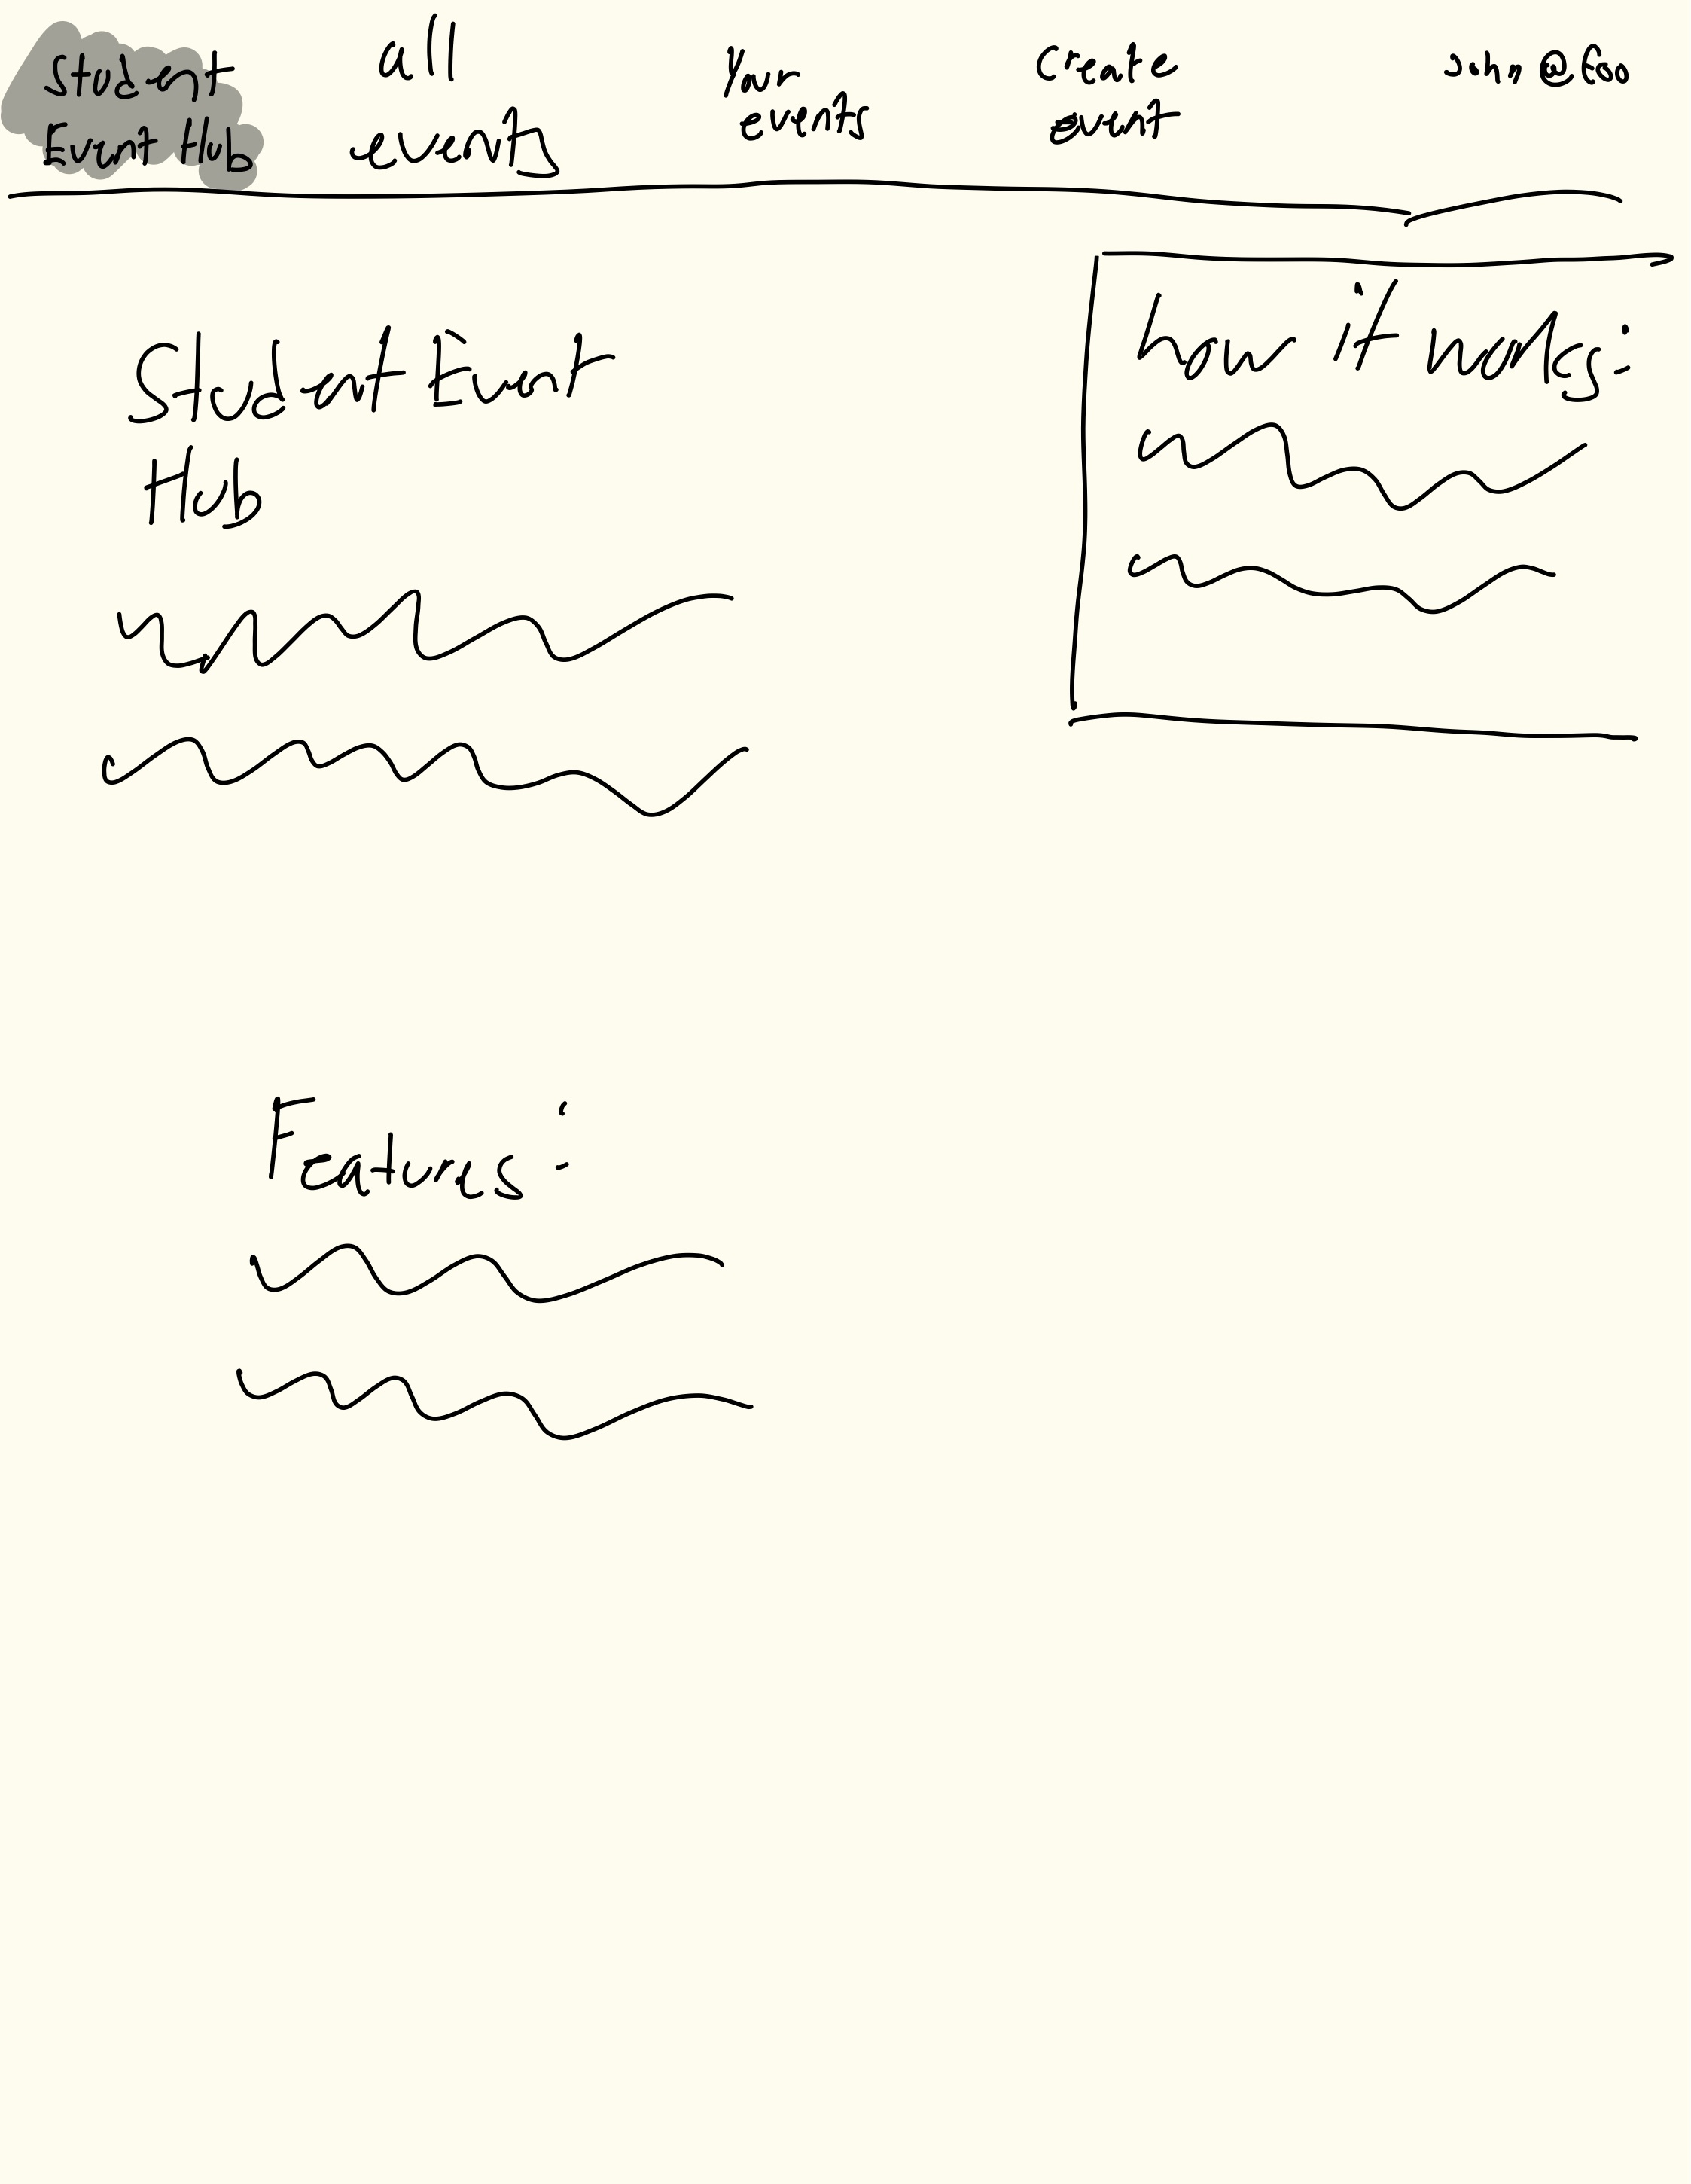 Student
Event Hub
all
events
Your
events
Create
event
John@foo
Student Event
Hub
how it works:
Features: